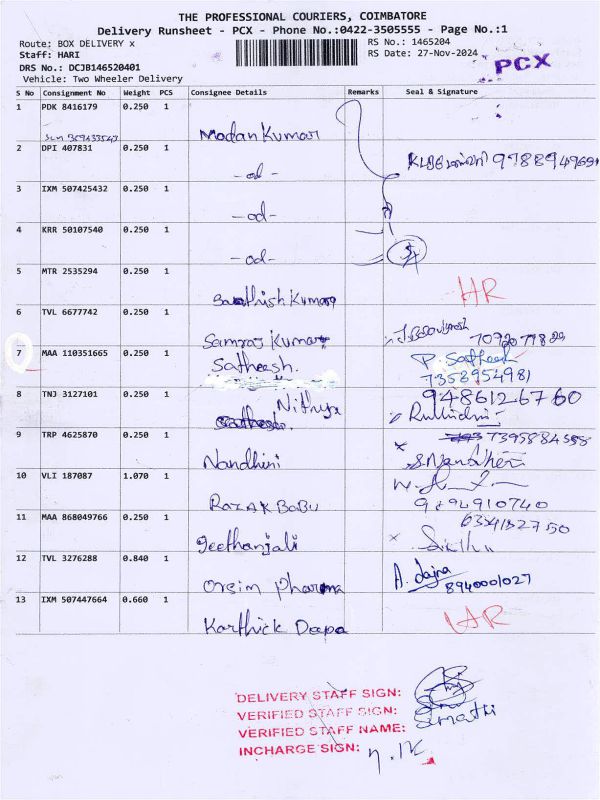 THE PROFESSIONAL COURIERS, COIMBATORE
Delivery Runsheet - PCX - Phone No.:0422-3505555 - Page No.:1
Route: BOX DELIVERY x
Staff: HARI
DRS No.: DCJB146520401
Vehicle: Two Wheeler Delivery
RS No.: 1465204
RS Date: 27-Nov-2024
PCX
S No Consignment No Weight PCS Consignee Details Remarks Seal & Signature
1 PDK 8416179 0.250 1 Madan Kumar
2 DPI 407831 0.250 1 -od-
3 IXM 507425432 0.250 1 -od-
4 KRR 50107540 0.250 1 -od-
5 MTR 2535294 0.250 1 Sathish Kumar HR
6 TVL 6677742 0.250 1 Samraj Kumar
7 MAA 110351665 0.250 1 Satheesh. P. Satheesh
7358954981
8 TNJ 3127101 0.250 1 Nithya 9486126760
9 TRP 4625870 0.250 1 Nandhini 7395884558
S.Nandhini
10 VLI 187087 1.070 1 RAZAK BABU
9892910740
11 MAA 868049766 0.250 1 Geethanjali
12 TVL 3276288 0.840 1 Orsim Pharma
8940001027
13 IXM 507447664 0.660 1 Karthick Deepa HR
DELIVERY STAFF SIGN:
VERIFIED STAFF SIGN:
VERIFIED STAFF NAME: Sumathi
INCHARGE SIGN: